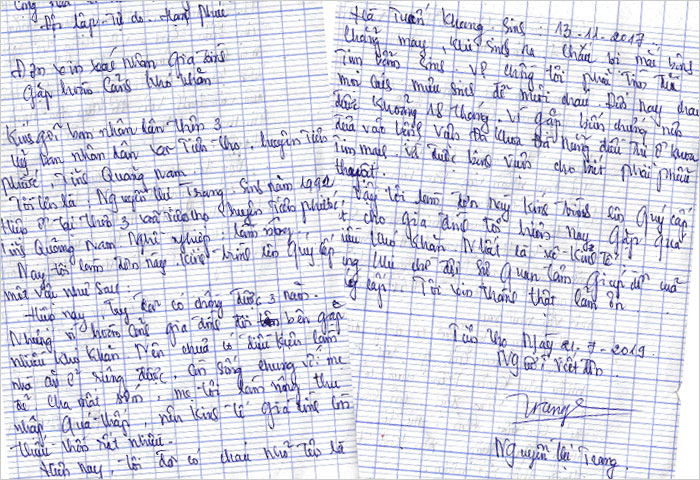 Độc lập - Tự do - Hạnh Phúc
Đơn xin xác nhận gia đình
Gặp hoàn cảnh khó khăn
Kính gởi ban nhân dân thôn 3
Uỷ ban nhân dân xã Tiên Thọ, huyện Tiên
Phước, tỉnh Quảng Nam
Tôi tên là: Nguyễn Thị Trang. Sinh năm 1992
Hiện ở tại thôn 3 xã Tiên Thọ huyện Tiên Phước
tỉnh Quảng Nam Nghề nghiệp: làm nông.
Nay tôi làm đơn này kính trình lên quý cấp
một việc như sau:
Hiện nay, tôi có chồng được 3 năm.
Nhưng vì hoàn cảnh gia đình đôi bên gặp
nhiều khó khăn. Nên chưa có điều kiện làm
nhà ở riêng được, còn sống chung với mẹ
cha mất sớm, mẹ tôi làm nông thu
nhập quá thấp, nên kinh tế gia đình còn
thiếu thốn rất nhiều.
Hiện nay, tôi có cháu nhỏ tên là
Hà Tuấn Khang, sinh: 13-11-2017
Chẳng may, khi sinh ra cháu bị mắc bệnh
Tim bẩm sinh. Vợ chồng tôi phải tìm
mọi cách mưu sinh để nuôi cháu. Đến nay cháu
được khoảng 18 tháng. Vì gặp biến chứng nên
đưa vào bệnh viện Đa khoa Đà Nẵng điều trị ở khoa
Tim mạch. và được bệnh viện cho biết phải phẫu
thuật.
Vậy tôi làm đơn này kính trình lên quý cấp
cho gia đình tôi hiện nay gặp quá
khó khăn Nhất là về kinh tế.
mong chờ đợi sự quan tâm giúp đỡ của
quý cấp. Tôi xin thành thật cảm ơn.
Tiên Thọ Ngày 21-7-2019.
Người viết đơn.
Trang
Nguyễn Thị Trang.